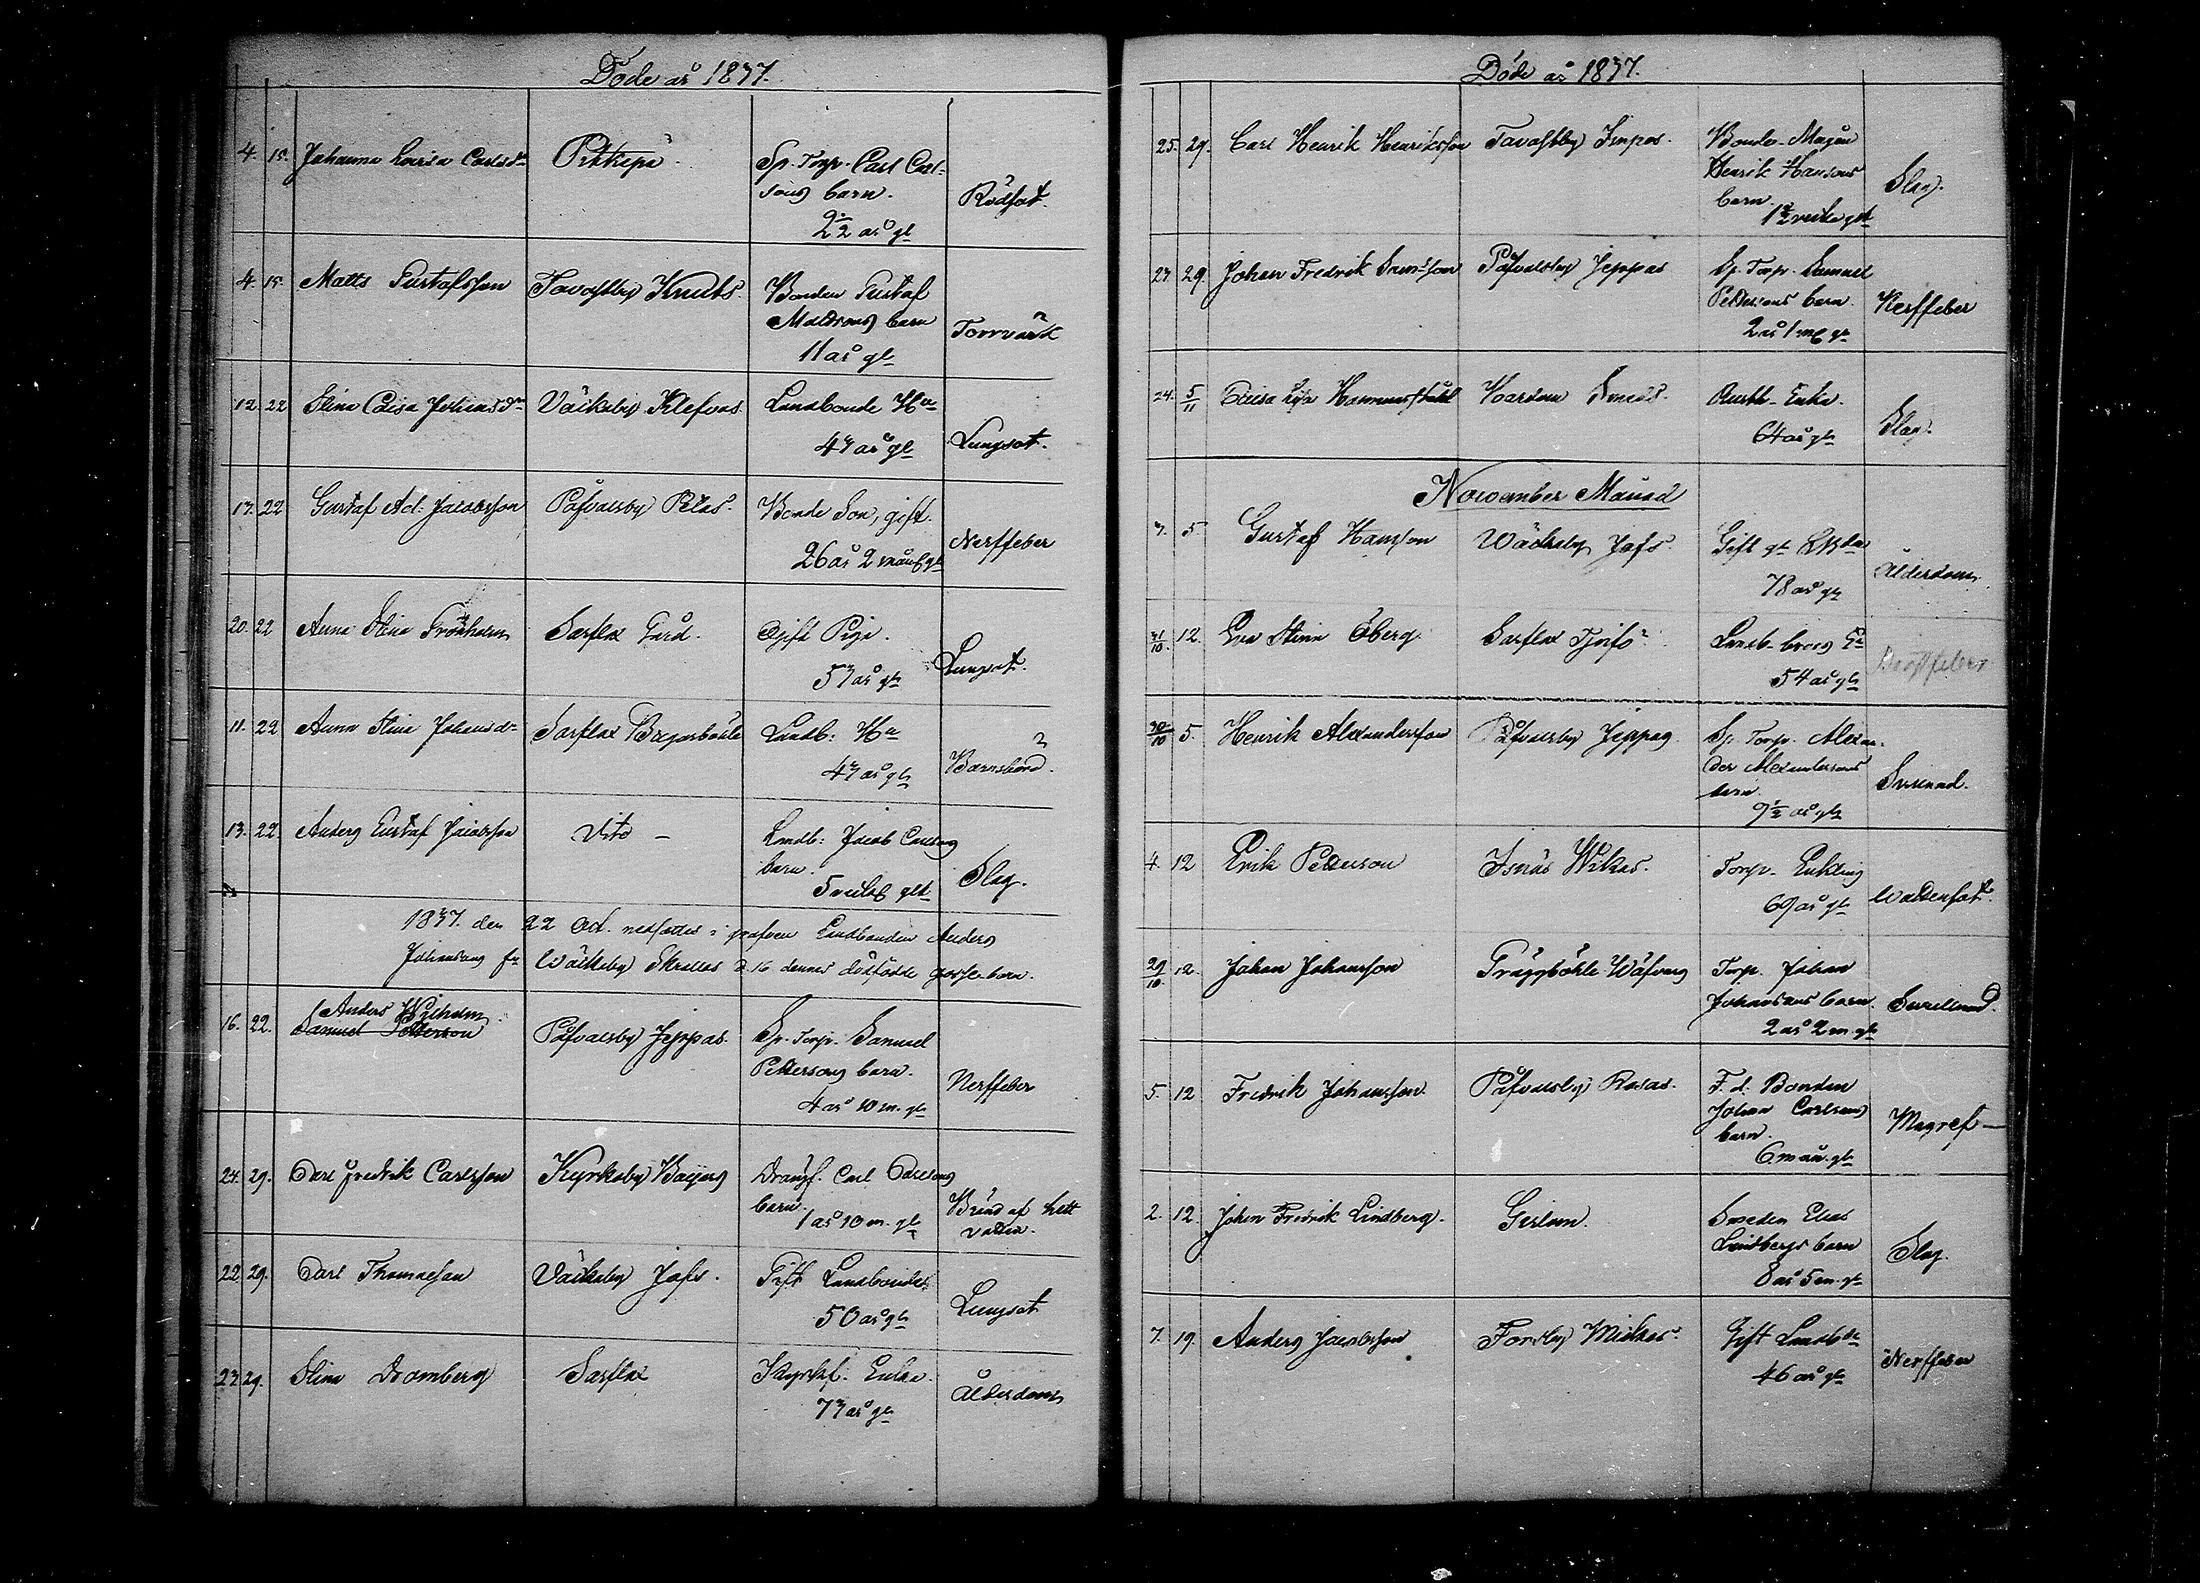 Döde år 1837.
4. 15. Johanna Lovisa Carlsdr Pikkupä Sp. Torp. Carl Carl-
sons barn.
2½ år gl Rödsot.
4. 15. Matts Gustafsson Tavastby Knuts. Bonden Gustaf
Mattsons barn
11 år gl Torrvärk
12. 22 Stina Caisa Johansdr Väckoby Klefvas Landbonde Hu
47 år gl Lungsot.
17. 22 Gustaf Ad. Jacobsson Påfvalsby Pelas. Bonde Son, gift.
26 år 2 mån gl Nerffeber
20. 22 Anna Stina Grönholm Sarflax Gård. Ogift Piga.
57 år gl Lungsot.
11. 22 Anna Stina Johansdr Sarflax Bryorsböhle Landb: Hu
47 år gl Barnsbörd.
13. 22. Anders Gustaf Jacobsson Dito – Landb: Jacob Carlsons
barn.
Slag.
1837. den 22 Oct. nedsattes i grafven Landbonden Anders
Johansons fr Wäckoby Skrallas d. 16 dennes dödfödde gosse-barn.
16. 22. Anders Wilhelm
Samuel Petterson Påfvalsby Jeppas. Sp. Torp. Samuel
Pettersons barn.
4 år 10 m. gl Nerffeber
24. 29. Carl Fredrik Carlsson Kyrkoby Baijars Carl Carlsons
barn.
1 år 10 m. gl Bränd af hett
vatten.
22. 29. Carl Thomasson Väckoby Jofs. Gift Landbonde
50 år gl Lungsot
23. 29. Stina Dromberg Sarflax Kyrkf. Enka.
77 år gl Ålderdom
Döde år 1837.
25. 29. Carl Henrik Henriksson Tavastby Impos. Bonde-Mågen
Henrik Hansons
barn.
1½ vecka glt Slag.
23. 29. Johan Fredrik Sam:sson Påfvalsby Jeppas Sp. Torp. Samuel
Pettersons barn.
2 år 1 m gl Nerffeber
24. 5/11 Caisa Hammarstråhl Hardom Smeds. Enka.
64 år gl Slag.
November Månad
3. 5 Gustaf Hansson Wäckoby Jofs. Gift
78 år gl Ålderdom.
31/10. 12. Eva Stina Öberg. Sarflax Tjvifs
54 år gl Bröstfeber
30/10 5. Henrik Alexandersson Påfvalsby Jeppas Sp. Torp. Alexan-
der Alexandersons
barn.
9½ år gl Svullnad.
4. 12 Erik Petterson Isnäs Wikas. Torp. Enkling
69 år gl Wattensot.
29/10. 12. Johan Johansson Gräggböhle Wäfvars Torp. Johan
Johansons barn.
2 år 2 m. gl Svullnad.
5. 12 Fredrik Johansson. Påfvalsby Rasas. F. d. Bonden
Johan Carlsons
barn.
6 mån. gl Magref –
2. 12. Johan Fredrik Lindberg. Gislom. Smeden Elias
Lindbergs barn
8 år 5 m. gl Slag.
7. 19. Anders Jacobsson Forsby Mickos. Gift Landbde
46 år gl Nerffeber